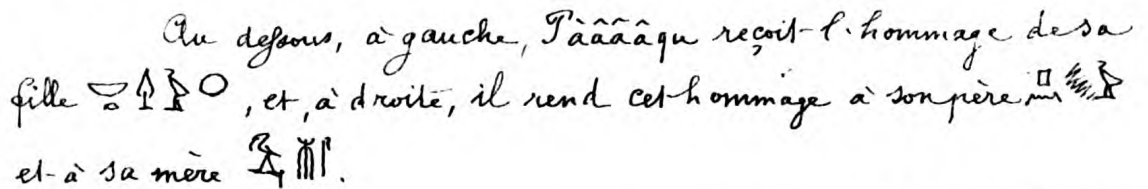 Au dessous, à gauche, Pàâââqu reçoit l'hommage de sa
fille, et, à droite, il rend cet hommage à son père
et à sa mère.